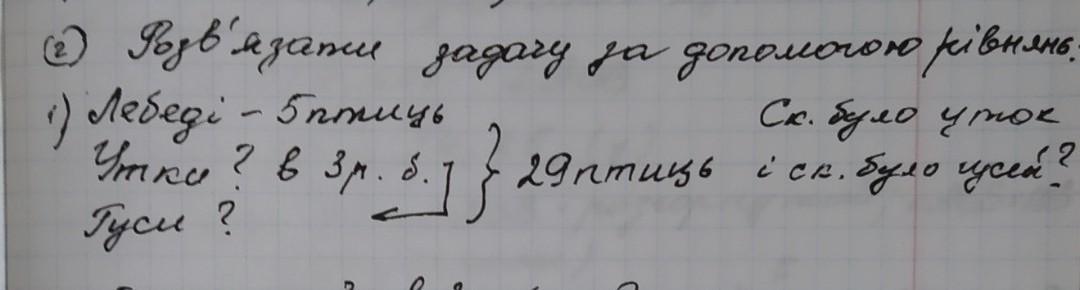 (2) Розв'язати задачу за допомогою рівнянь:
1) Лебеді – 5 птиць Ск. було уток
Утки ? в 3 р. б. } 29 птиць і ск. було гусей?
Гуси ?